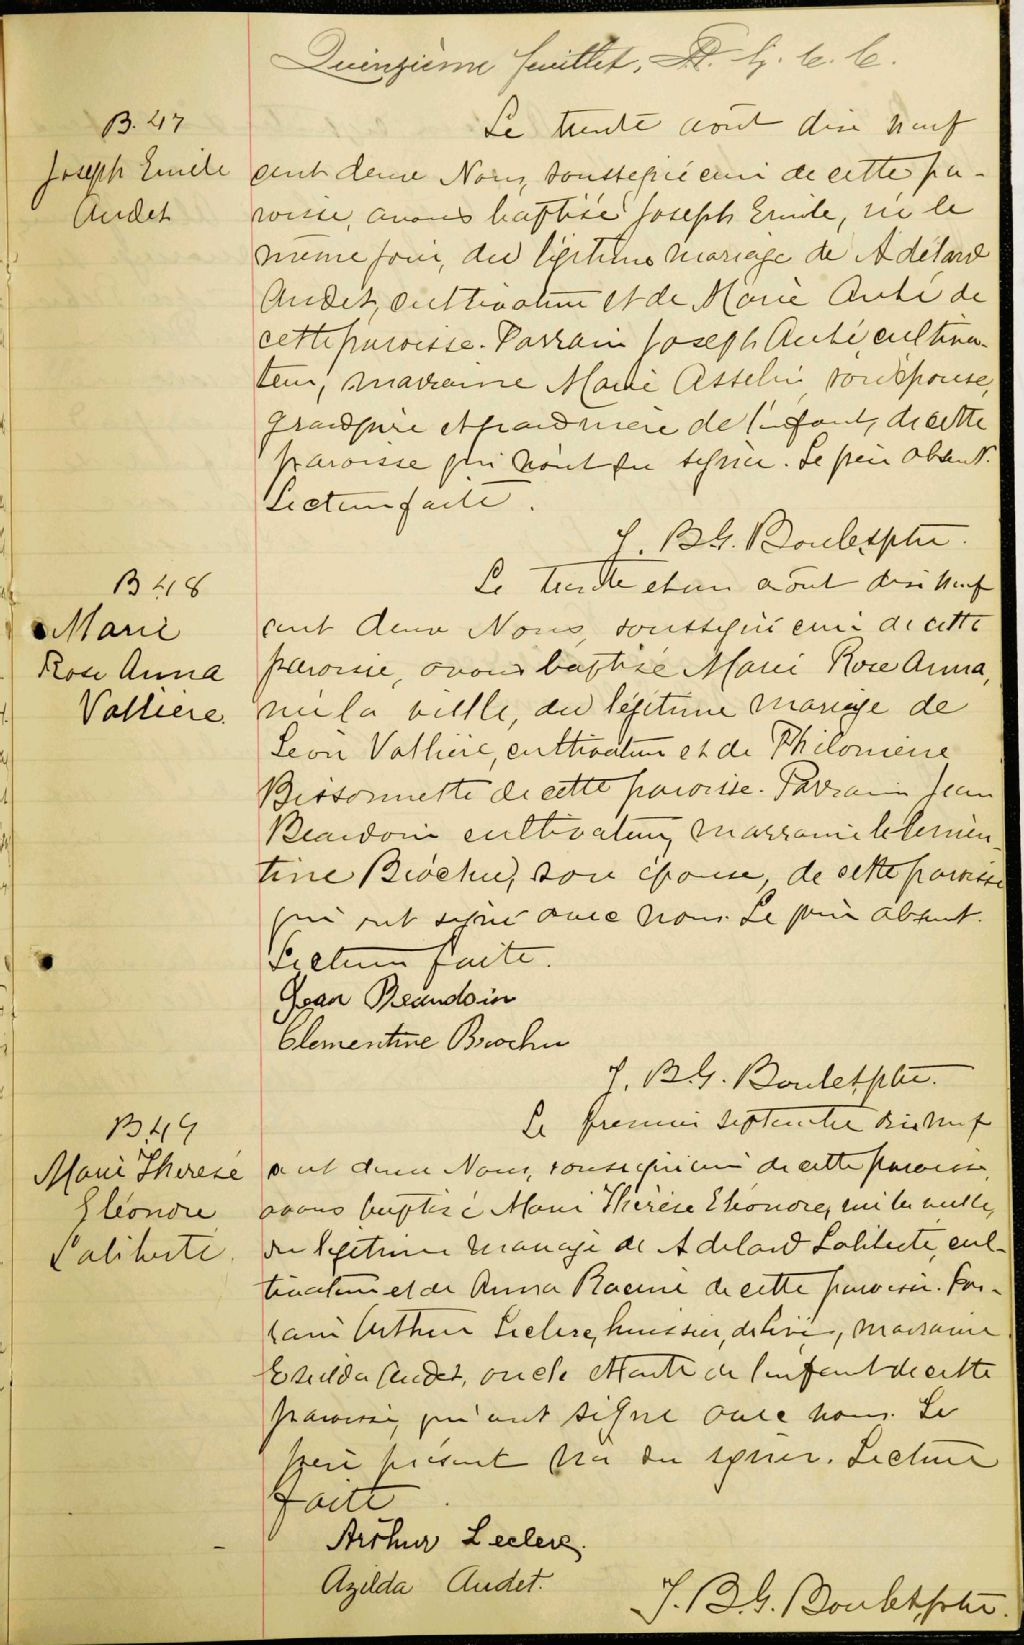 Quinzième feuillet, G. C. C.
B. 47
Joseph Emile
Audet
Le trente août dix neuf
cent deux Nous, soussigné curé de cette pa-
roisse, avons baptisé Joseph Emile, né le
même jour, du légitime mariage de Adélard
Audet, cultivateur et de Marie Aubé de
cette paroisse. Parrain Joseph Aubé cultiva-
teur, marraine Marie Asselin, son épouse,
grandpère et grandmère de l'enfant, de cette
paroisse qui n'ont su signer. Le père absent.
Lecture faite.
J. B. G. Boulet, ptre.
B 48
Marie
Rose Anna
Vallière.
Le trente et un août dix neuf
cent deux Nous, soussigné curé de cette
paroisse, avons baptisé Marie Rose Anna,
née la veille, du légitime mariage de
Léon Vallière, cultivateur et de Philomène
Bissonnette de cette paroisse. Parrain Jean
Beaudoin cultivateur, marraine Clémen-
tine Brochu, son épouse, de cette paroisse
qui ont signé avec nous. Le père absent.
Lecture faite.
Jean Beaudoin
Clementine Brochu
J. B. G. Boulet, ptre.
B. 49
Marie Therese
Eléonore
Laliberté
Le premier septembre dix neuf
cent deux Nous, soussigné curé de cette paroisse,
avons baptisé Marie Thérèse Eléonore, née la veille,
du légitime mariage de Adelard Laliberté, cul-
tivateur et de Anna Racine de cette paroisse. Par-
rain Arthur Leclerc, huissier, de , marraine
Exilda Audet, oncle et tante de l'enfant de cette
paroisse, qui ont signé avec nous. Le
père présent n'a su signer. Lecture
faite
Arthur Leclerc.
Azilda Audet.
J. B. G. Boulet, ptre.